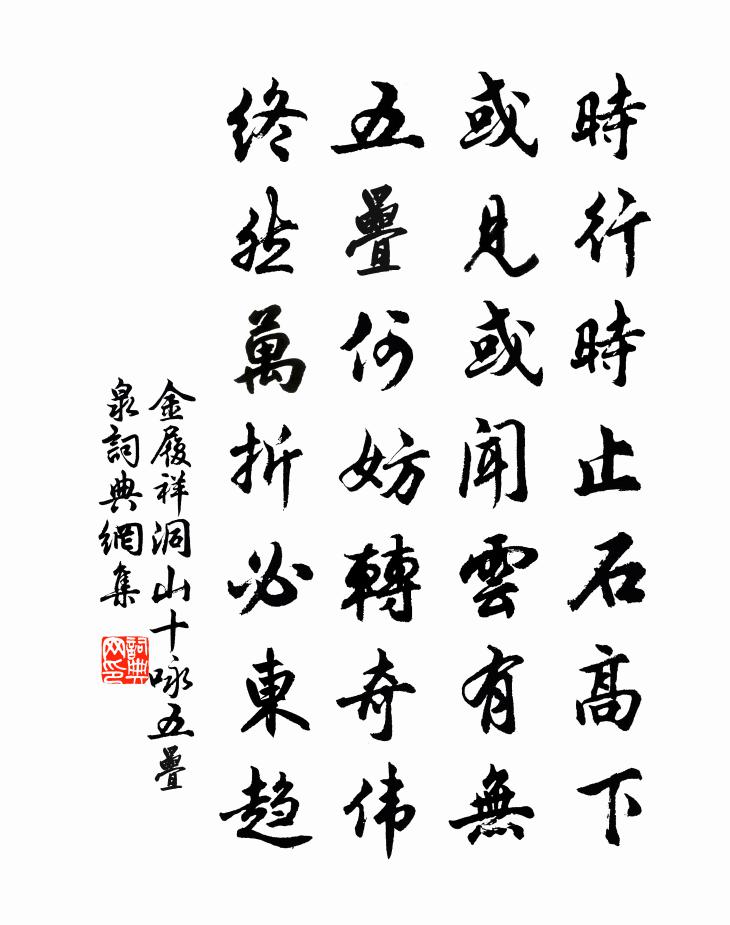 時行時止石高下
或見或聞雲有無
五疊何妨轉奇伟
終然萬折必東趨
金履祥洞山十咏五疊
泉詞典網集
詞典
网印